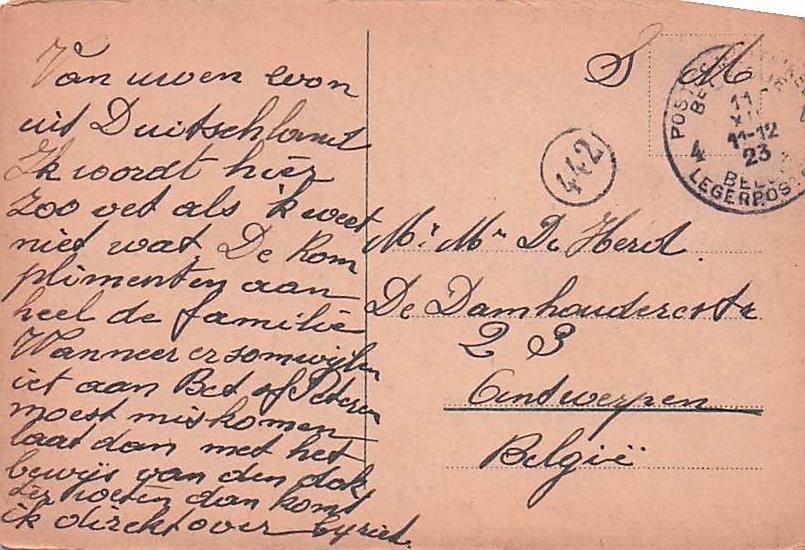 Van uwen zoon
uit Duitschland
Ik wordt hier
zoo vet als 'k weet
niet wat. De kom
plimenten aan
heel de familie
Wanneer er somwijlen
iet aan Bet of Peteren
moest miskomen
laat dan met het
bewijs van den dok
ter weten dan komt
ik direkt over
S M
POSTES
BELGIQUE
11
XII
11-12
23
4
BELGI
LEGERPOST
442
Mr Mm De Herd.
De Damhouderestr
23
Antwerpen
België